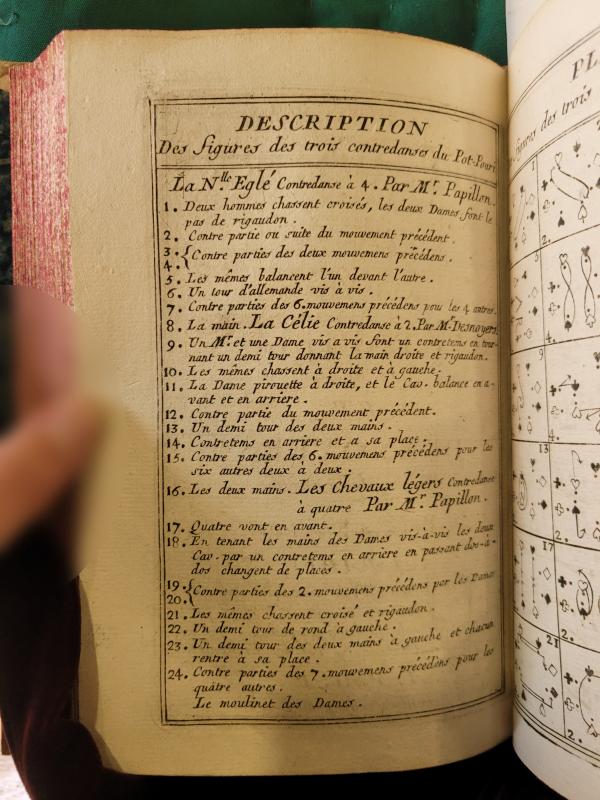 DESCRIPTION
Des figures des trois contredanses du Pot-Pouri
La N.lle Eglé Contredanse à 4. Par Mr. Papillon.
1. Deux hommes chassent croisés, les deux Dames font le
pas de rigaudon.
2. Contre partie ou suite du mouvement précédent.
3. Contre parties des deux mouvemens précedens.
4.
5. Les mêmes balancent l'un devant l'autre.
6. Un tour d'allemande vis à vis.
7. Contre parties des 6. mouvemens précédens pour les 4 autres.
8. La main. La Célie Contredanse à 2. Par Mr. Desnoyers.
9. Un Mr. et une Dame vis a vis font un contretems en tour-
nant un demi tour donnant la main droite et rigaudon.
10. Les mêmes chassent à droite et à gauche.
11. La Dame pirouette à droite, et le Cav. balance en a-
vant et en arriere.
12. Contre partie du mouvement précédent.
13. Un demi tour des deux mains.
14. Contretems en arriere et a sa place.
15. Contre parties des 6. mouvemens précédens pour les
six autres deux à deux.
16. Les deux mains. Les Chevaux légers Contredanse
à quatre Par Mr. Papillon.
17. Quatre vont en avant.
18. En tenant les mains des Dames vis-à-vis les deux
Cav. par un contretems en arriere en passant dos-à-
dos changent de places.
19. Contre parties des 2. mouvemens précédens par les Dames
20.
21. Les mêmes chassent croisé et rigaudon.
22. Un demi tour de rond à gauche.
23. Un demi tour des deux mains à gauche et chacun
rentre à sa place.
24. Contre parties des 7. mouvemens précédens pour les
quatre autres.
Le moulinet des Dames.
PL
figures des trois
1
2.
2.
9
2.
13
2.
17
2.
21
2.